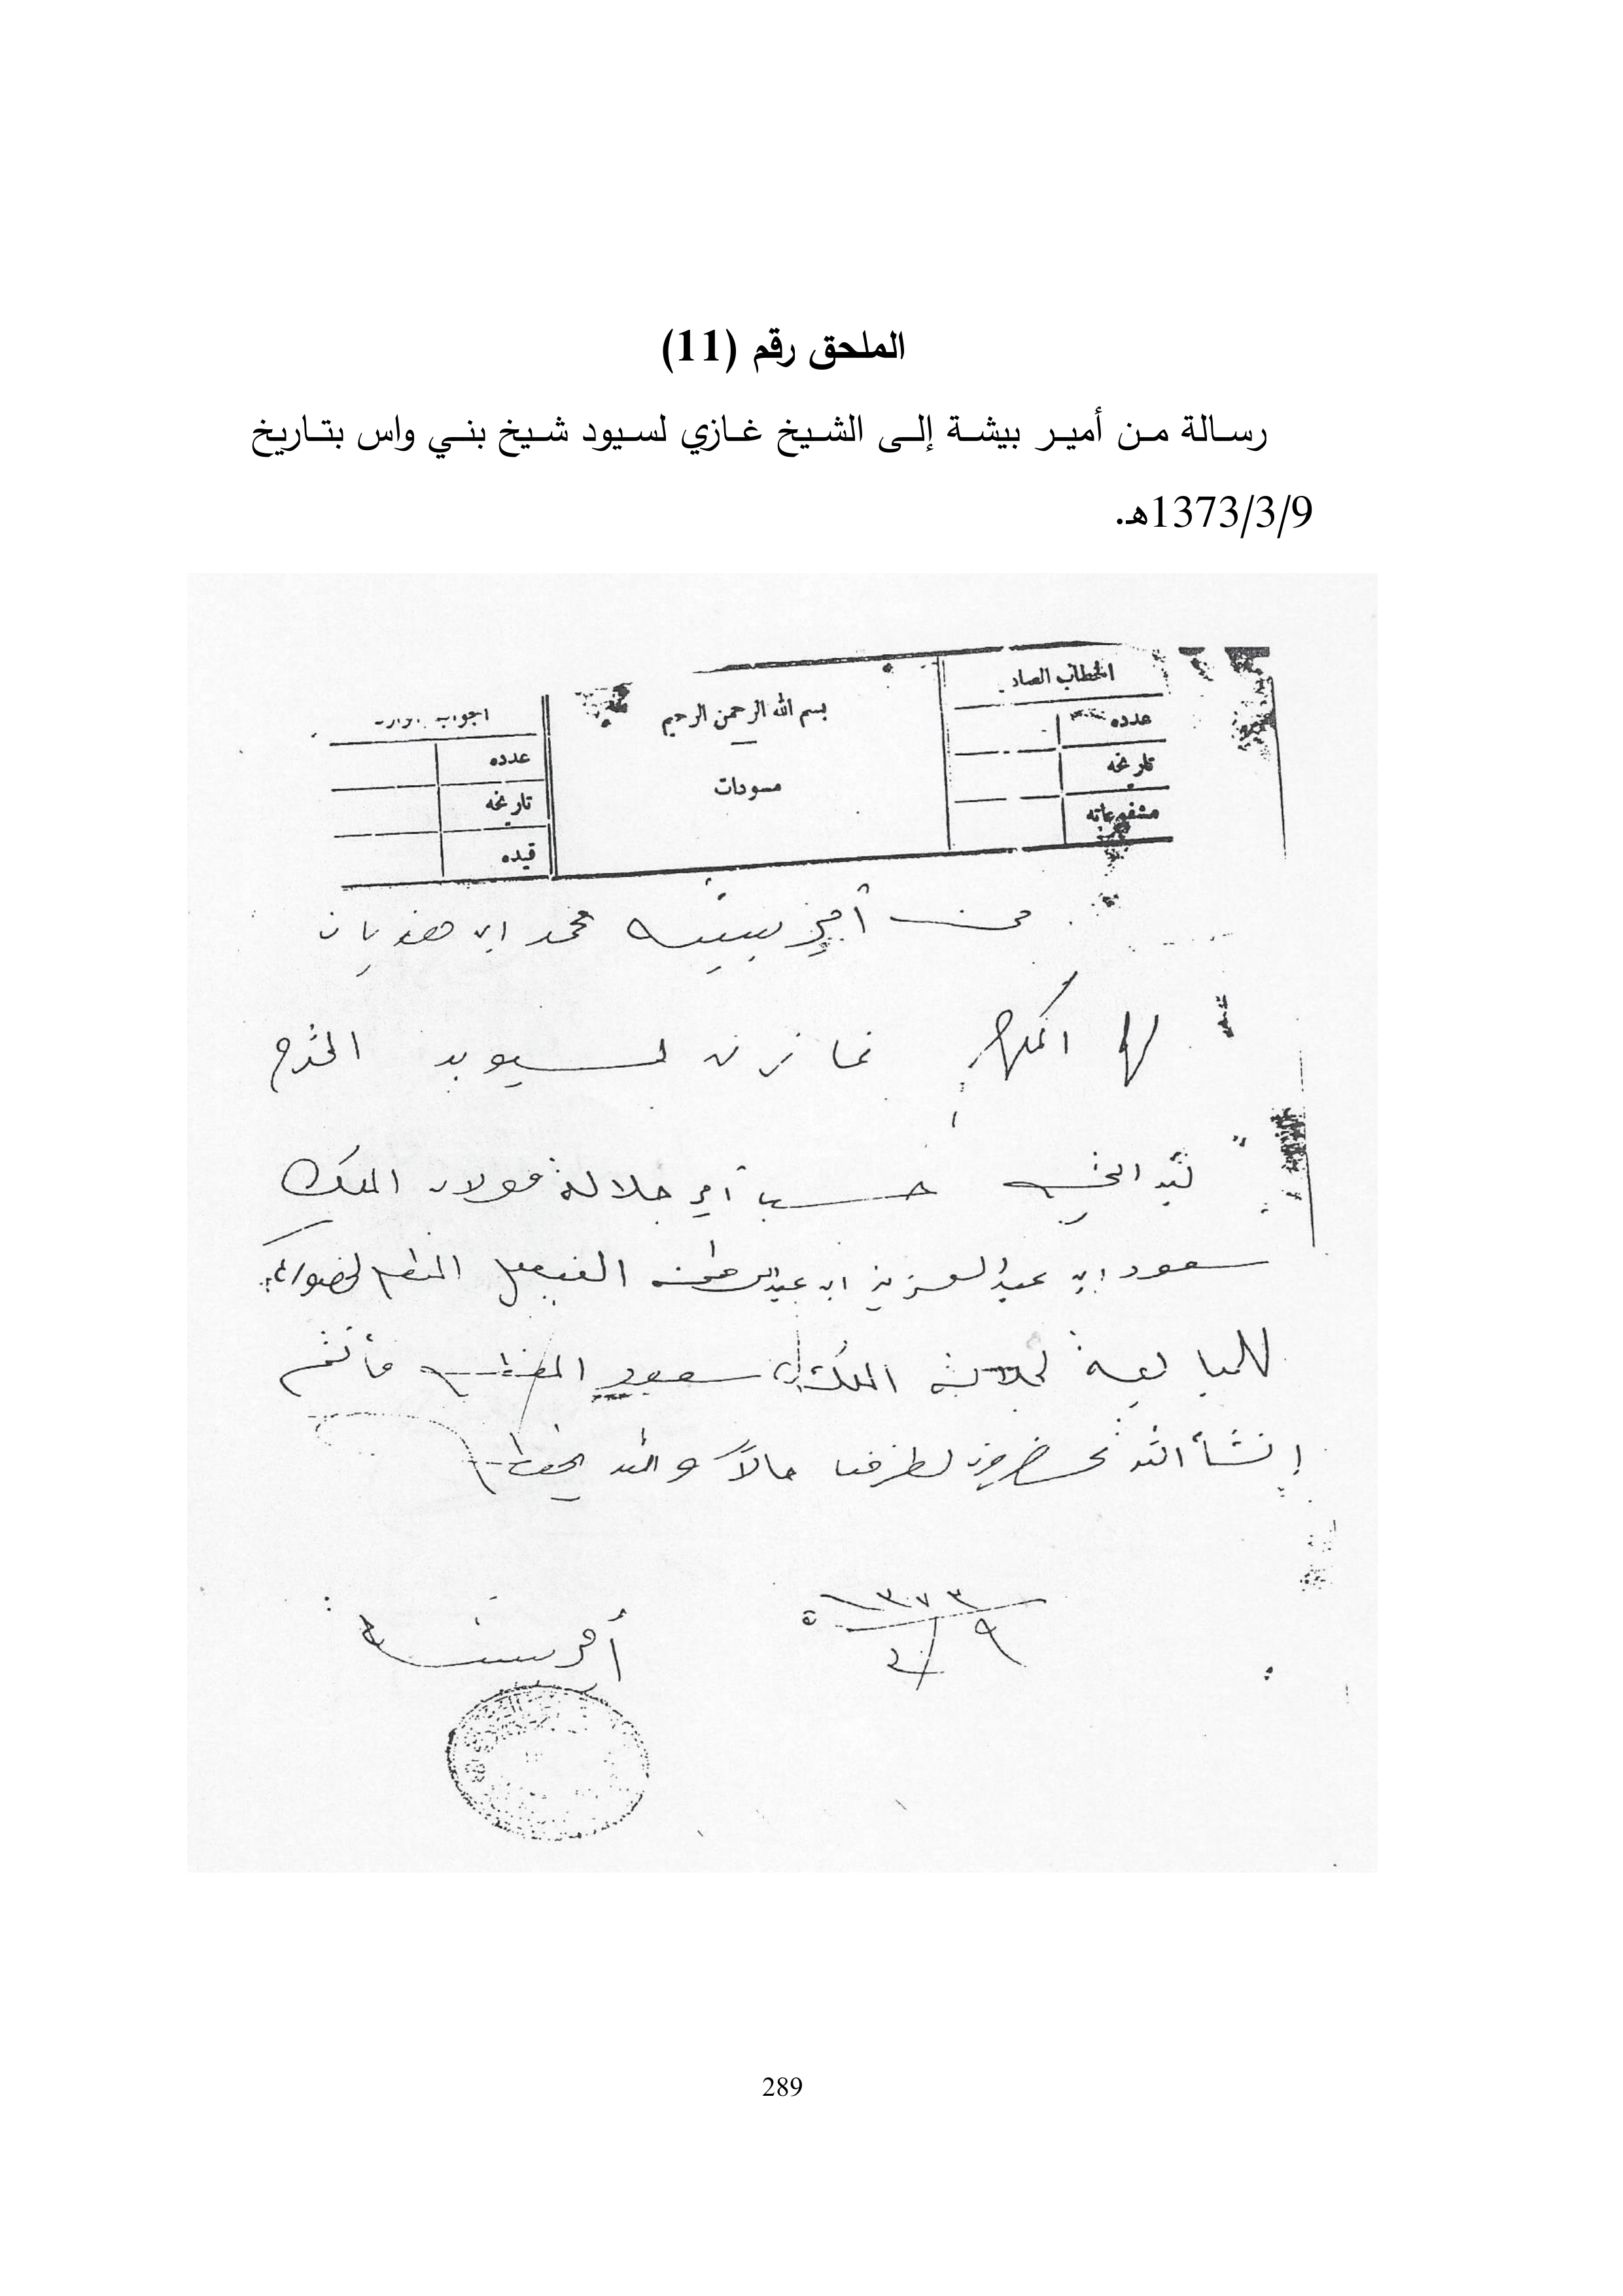 الملحق رقم (11)
رسالة من أمير بيشة إلى الشيخ غازي لسيود شيخ بني واس بتاريخ
1373/3/9هـ.
الخطاب الصاد
عدده
تاريخه
مشفوعاته
بسم الله الرحمن الرحيم
مسودات
عدده
تاريخه
قيده
من أمير بيشه محمد ابن
المكرم غازي لسيود المحترم
بعد التحيه حسب أمر جلالة مولاي الملك
سعود ابن عبدالعزيز ابن عبدالرحمن الفيصل المعظم لحضوركم
للمبايعة لجلالة الملك سعود المعظم فأنتم
إنشأ الله تحضرون لطرفنا حالاً والله يحفظكم
١٣٧٣
٩/٣ ه
أمير بيشه
289